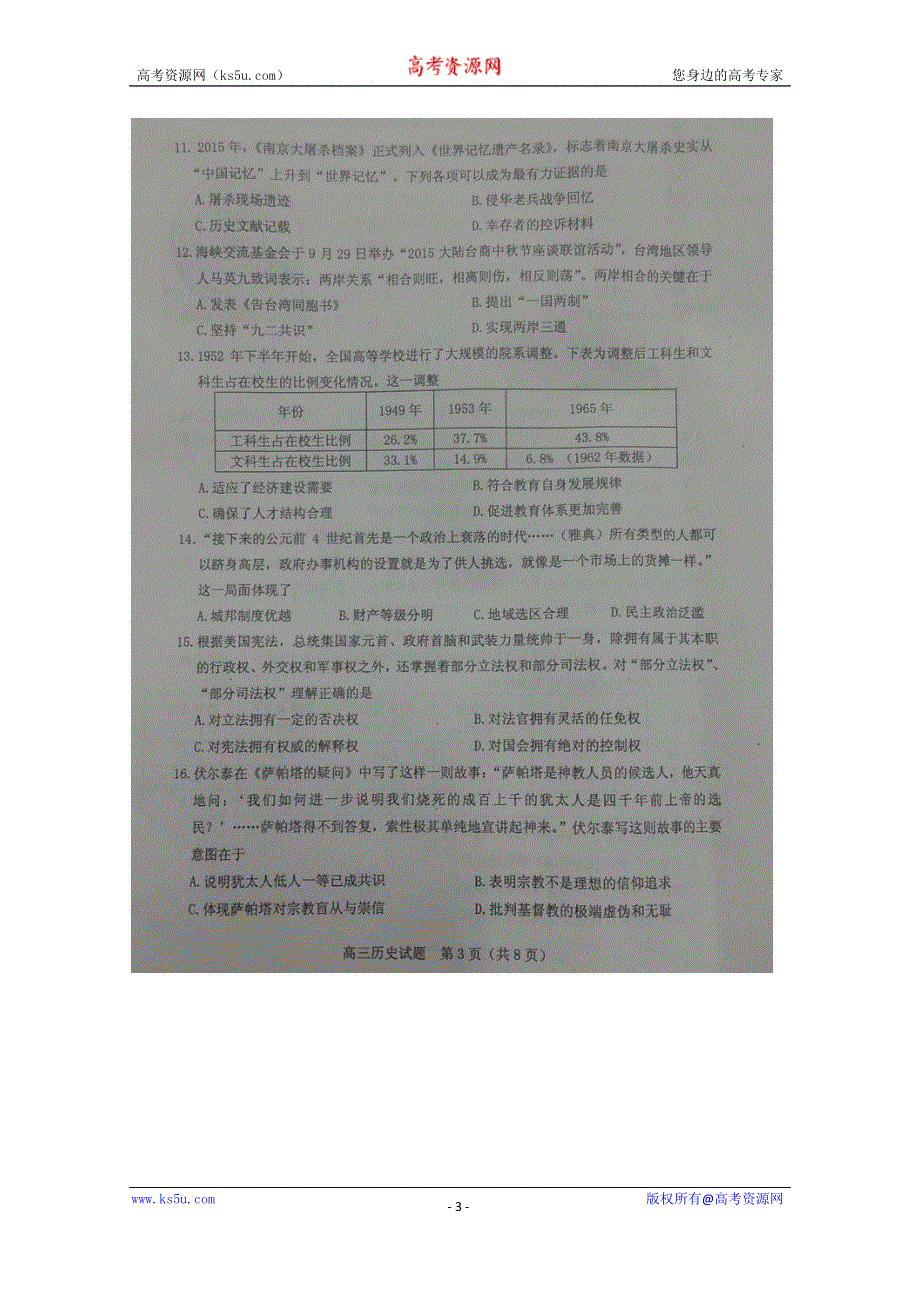 高考资源网（ks5u.com）
高考资源网
您身边的高考专家
11. 2015年，《南京大屠杀档案》正式列入《世界记忆遗产名录》，标志着南京大屠杀史实从
“中国记忆”上升到“世界记忆”。下列各项可以成为最有力证据的是
A.屠杀现场遗迹 B.侵华老兵战争回忆
C.历史文献记载 D.幸存者的控诉材料
12.海峡交流基金会于9月29日举办“2015大陆台商中秋节座谈联谊活动”，台湾地区领导
人马英九致词表示：两岸关系“相合则旺，相离则伤，相反则荡”。两岸相合的关键在于
A.发表《告台湾同胞书》 B.提出“一国两制”
C.坚持“九二共识” D.实现两岸三通
13.1952年下半年开始，全国高等学校进行了大规模的院系调整。下表为调整后工科生和文
科生占在校生的比例变化情况。这一调整
年份 1949年 1953年 1965年
工科生占在校生比例 26.2% 37.7% 43.8%
文科生占在校生比例 33.1% 14.9% 6.8%（1962年数据）
A.适应了经济建设需要 B.符合教育自身发展规律
C.确保了人才结构合理 D.促进教育体系更加完善
14.“接下来的公元前4世纪首先是一个政治上衰落的时代……（雅典）所有类型的人都可
以跻身高层，政府办事机构的设置就是为了供人挑选，就像是一个市场上的货摊一样。”
这一局面体现了
A.城邦制度优越 B.财产等级分明 C.地域选区合理 D.民主政治泛滥
15.根据美国宪法，总统集国家元首、政府首脑和武装力量统帅于一身，除拥有属于其本职
的行政权、外交权和军事权之外，还掌握着部分立法权和部分司法权。对“部分立法权”、
“部分司法权”理解正确的是
A.对立法拥有一定的否决权 B.对法官拥有灵活的任免权
C.对宪法拥有权威的解释权 D.对国会拥有绝对的控制权
16.伏尔泰在《萨帕塔的疑问》中写了这样一则故事：“萨帕塔是神教人员的候选人，他天真
地问：‘我们如何进一步说明我们烧死的成百上千的犹太人是四千年前上帝的选
民？’……萨帕塔得不到答复，索性极其单纯地宣讲起神来。”伏尔泰写这则故事的主要
意图在于
A.说明犹太人低人一等已成共识 B.表明宗教不是理想的信仰追求
C.体现萨帕塔对宗教盲从与崇信 D.批判基督教的极端虚伪和无耻
高三历史试题 第3页（共8页）
www.ks5u.com
- 3 -
版权所有@高考资源网